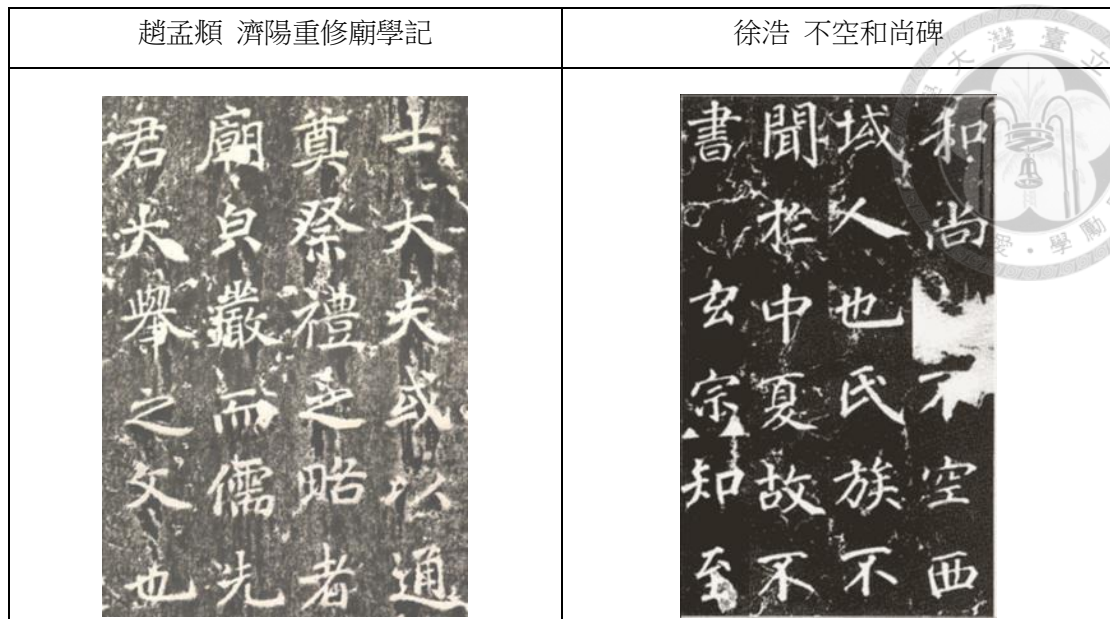 趙孟頫 濟陽重修廟學記
徐浩 不空和尚碑
士大夫或以通
奠祭禮之略者
廟皃嚴而儒先
君大舉之文也
和尚不空西
域人也氏族不
聞於中夏故不
書玄宗知至
立臺灣大學
愛・學勵